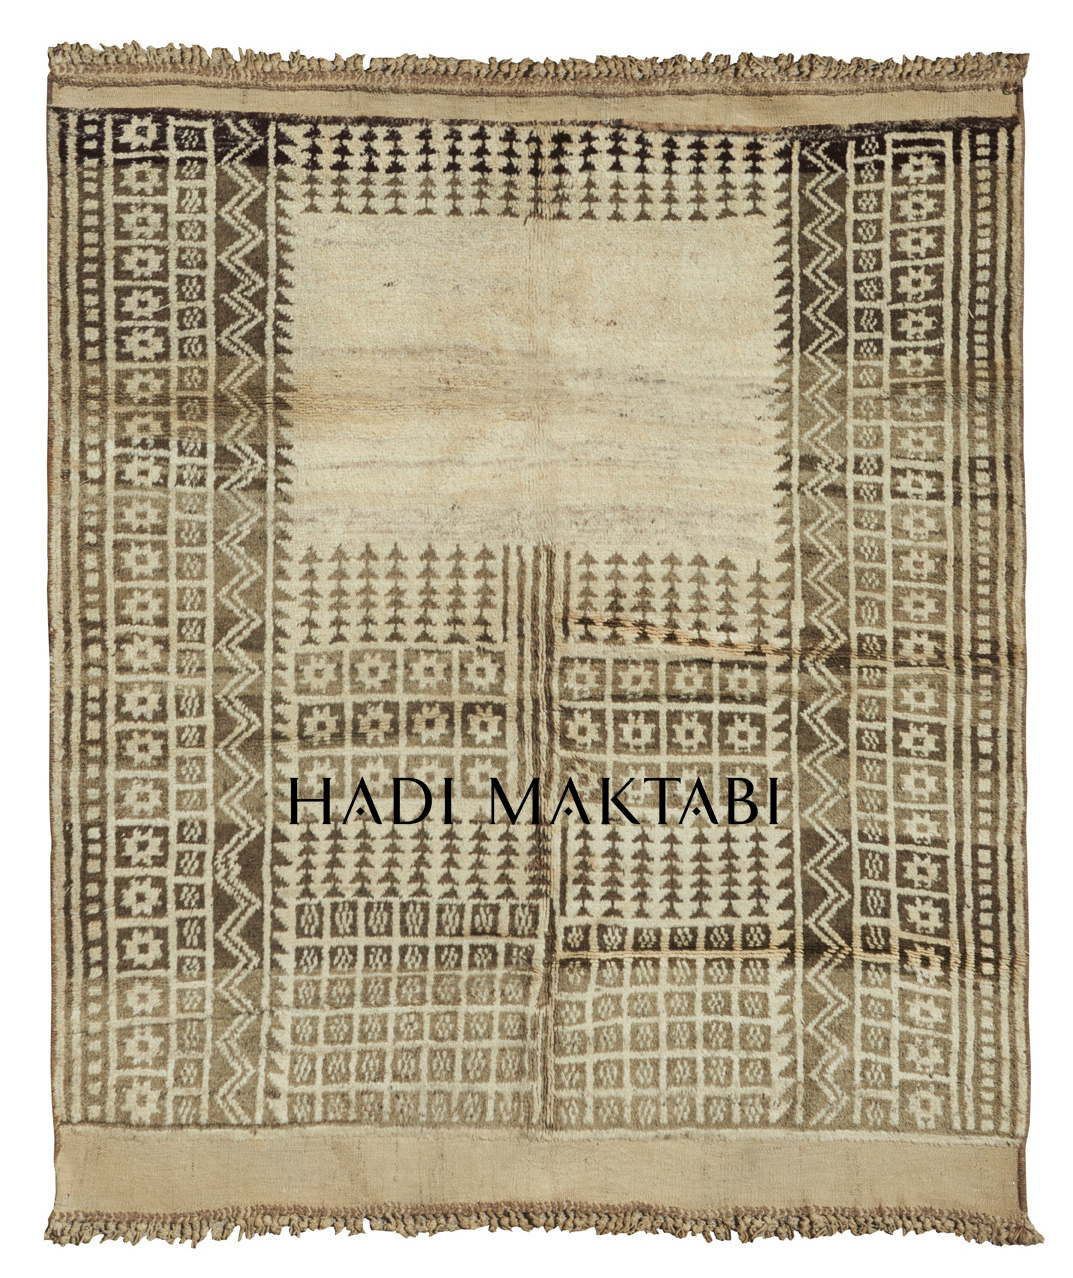 HADI MAKTABI